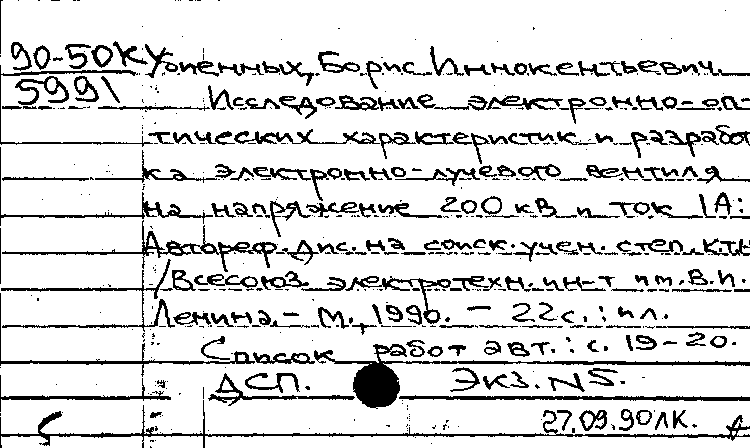 90-50КУ
5991
Борис Иннокентьевич.
Исследование электронно-оп-
тических характеристик и разработ
ка электронно-лучевого вентиля
на напряжение 200 кВ и ток 1А:
Автореф. дис. на соиск. учен. степ. к.т.н
/Всесоюз. электротехн. ин-т им. В.И.
Ленина. - М., 1990. - 22 с. : ил.
Список работ авт.: с. 19-20.
ДСП. Экз. N5.
27.09.90 ЛК.